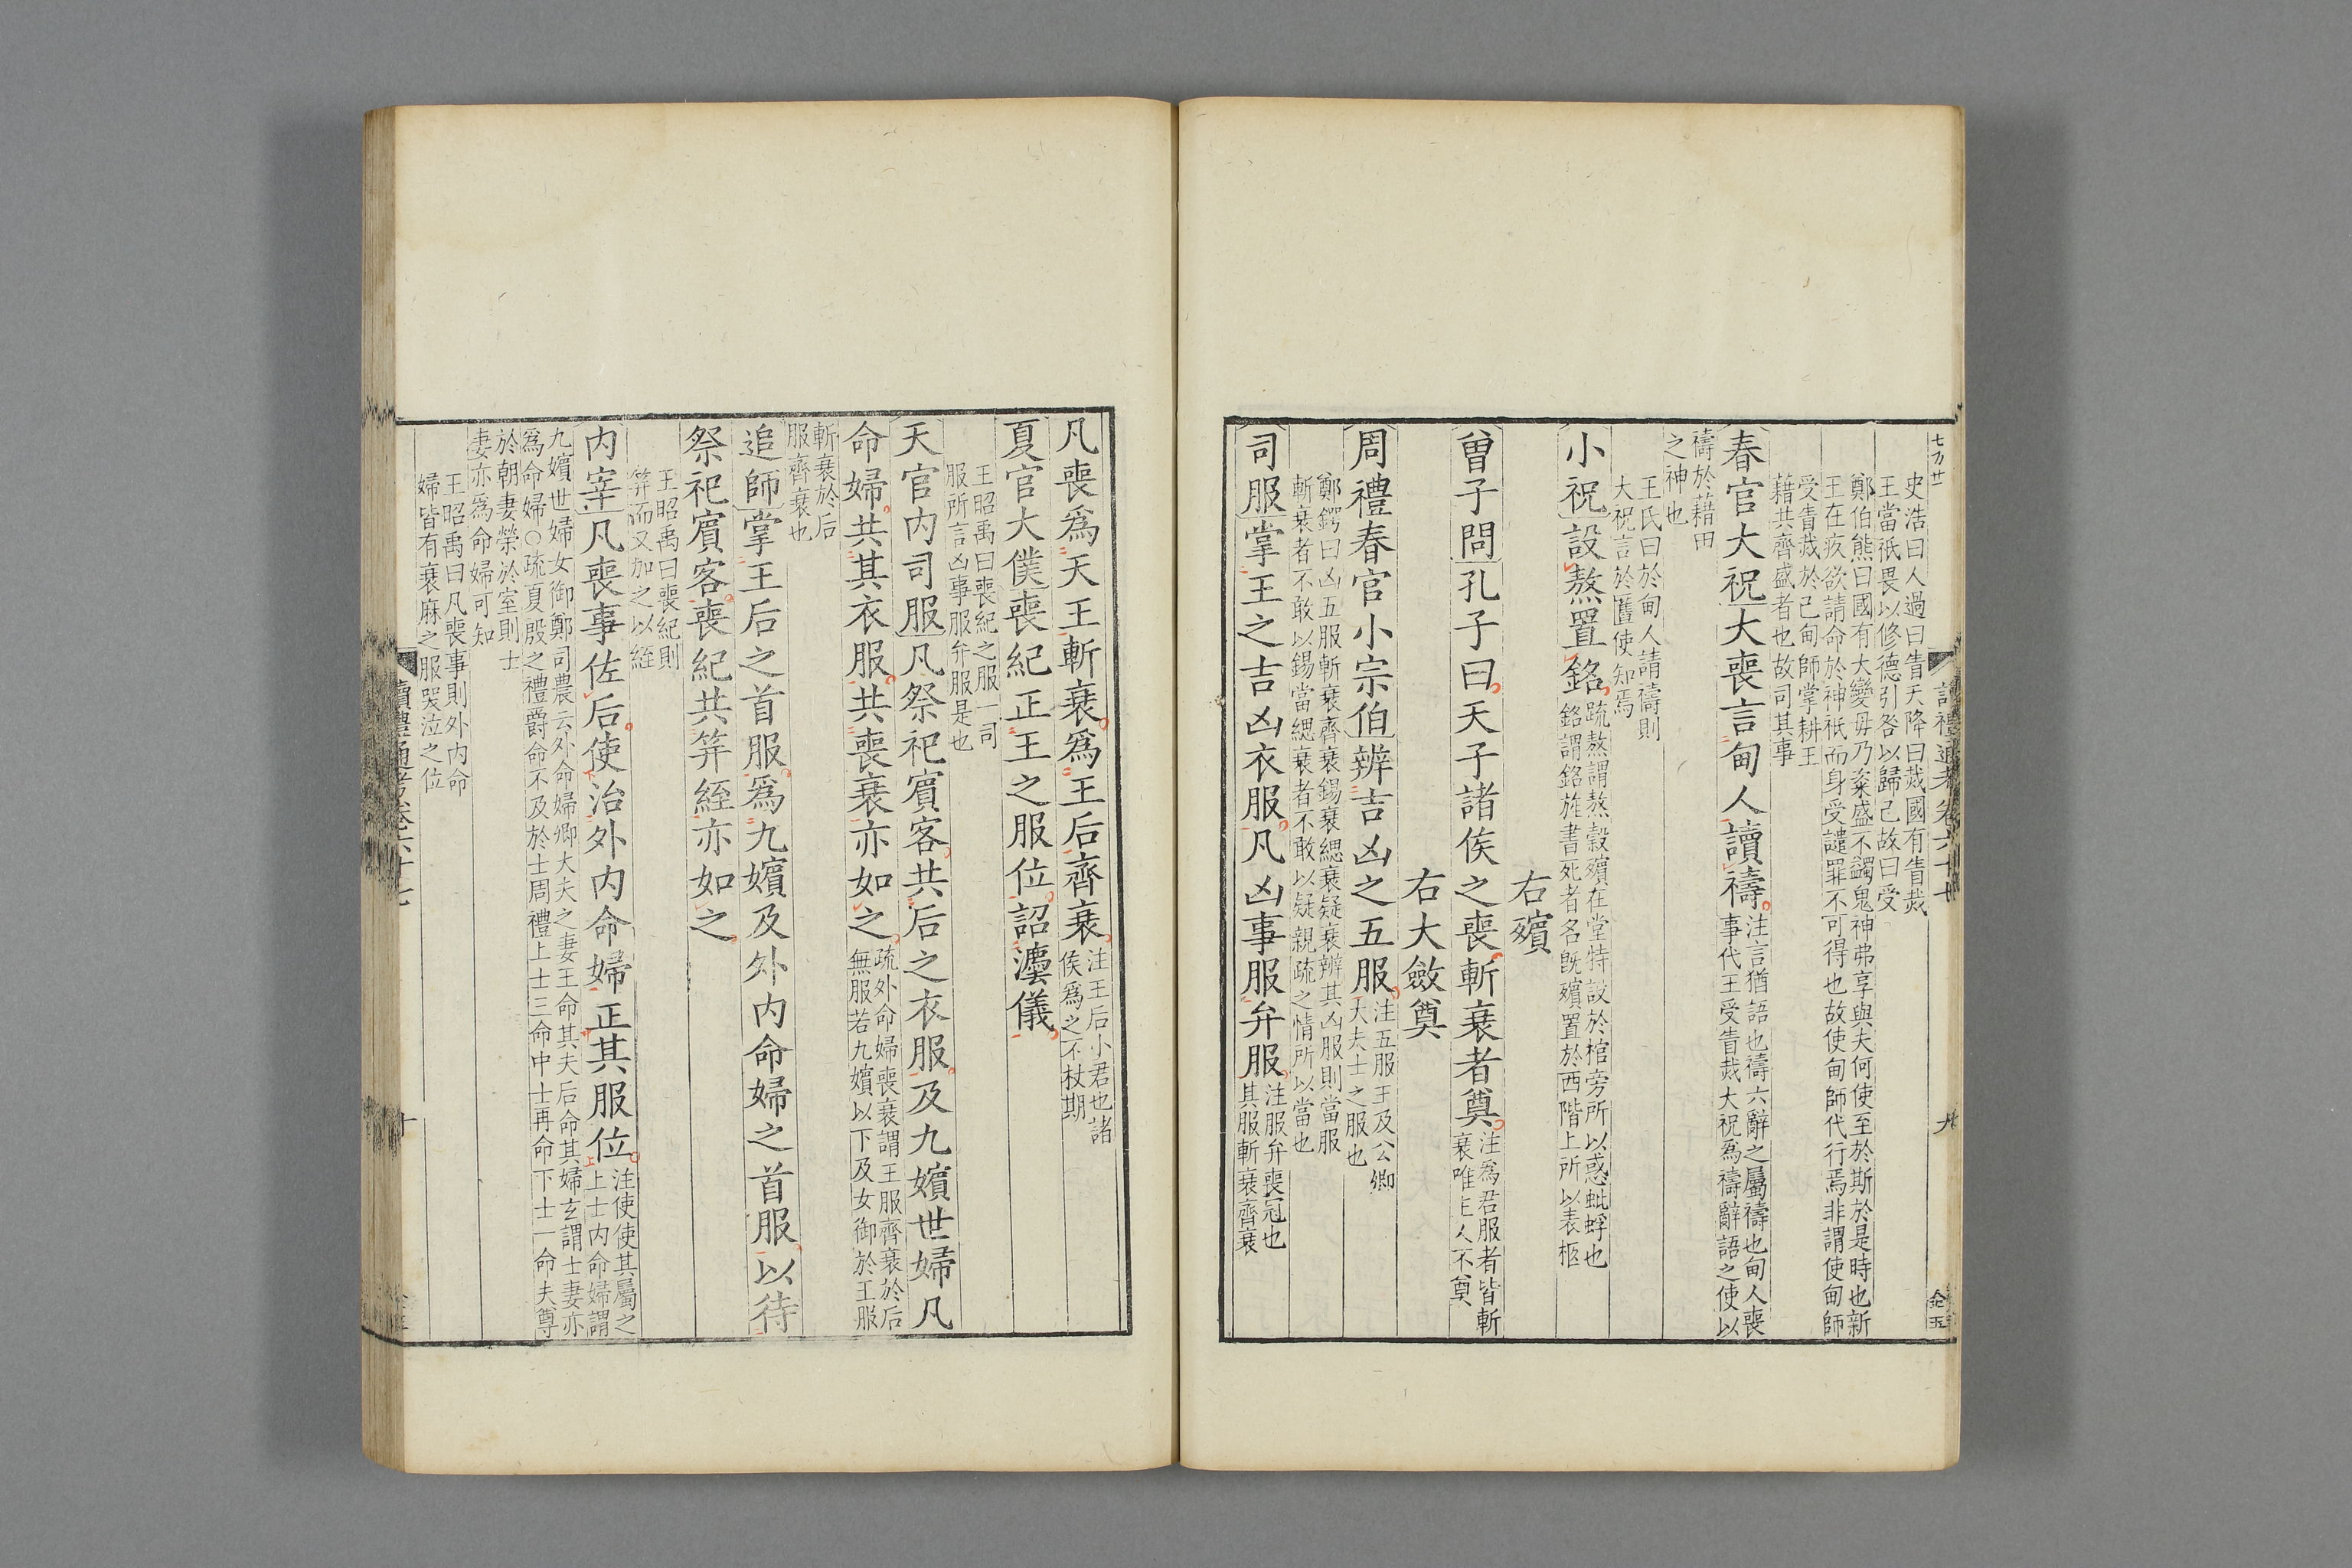 史浩曰人過曰眚天降曰烖國有眚烖
王當祇畏以修德引咎以歸己故曰受
鄭伯熊曰國有大變毋乃粢盛不蠲鬼神弗享與夫何使至於斯於是時也新
王在疚欲請命於神祇而身受譴罪不可得也故使甸師代行焉非謂使甸師
受眚烖於己甸師掌耕王
藉共齊盛者也故司其事
春官大祝大喪言甸人讀禱注言猶語也禱六辭之屬禱也甸人喪
事代王受眚烖大祝爲禱辭語之使以
禱於藉田
之神也
王氏曰於甸人請禱則
大祝言於舊使知焉
小祝設熬置銘疏熬謂熬穀殯在堂特設於棺旁所以惑蚍蜉也
銘謂銘旌書死者名旣殯置於西階上所以表柩
右殯
曾子問孔子曰天子諸侯之喪斬衰者奠注爲君服者皆斬
衰唯主人不奠
右大斂奠
周禮春官小宗伯辨吉凶之五服注五服王及公卿
大夫士之服也
鄭鍔曰凶五服斬衰齊衰錫衰緦衰疑衰辨其凶服則當服
斬衰者不敢以錫當緦衰者不敢以疑親疏之情所以當也
司服掌王之吉凶衣服凡凶事服弁服注服弁喪冠也
其服斬衰齊衰
讀禮通考卷六十七
九
凡喪爲天王斬衰爲王后齊衰注王后小君也諸
侯爲之不杖期
夏官大僕喪紀正王之服位詔灋儀
王昭禹曰喪紀之服一司
服所言凶事服弁服是也
天官内司服凡祭祀賓客共后之衣服及九嬪世婦凡
命婦共其衣服共喪衰亦如之疏外命婦喪衰謂王服齊衰於后
無服若九嬪以下及女御於王服
斬衰於后
服齊衰也
追師掌王后之首服爲九嬪及外内命婦之首服以待
祭祀賓客喪紀共筓絰亦如之
王昭禹曰喪紀則
筓而又加之以絰
内宰凡喪事佐后使治外内命婦正其服位注使使其屬之
上士内命婦謂
九嬪世婦女御鄭司農云外命婦卿大夫之妻王命其夫后命其婦玄謂士妻亦
爲命婦○疏夏殷之禮爵命不及於士周禮上士三命中士再命下士一命夫尊
於朝妻榮於室則士
妻亦爲命婦可知
王昭禹曰凡喪事則外内命
婦皆有衰麻之服哭泣之位
讀禮通考卷六十七
十